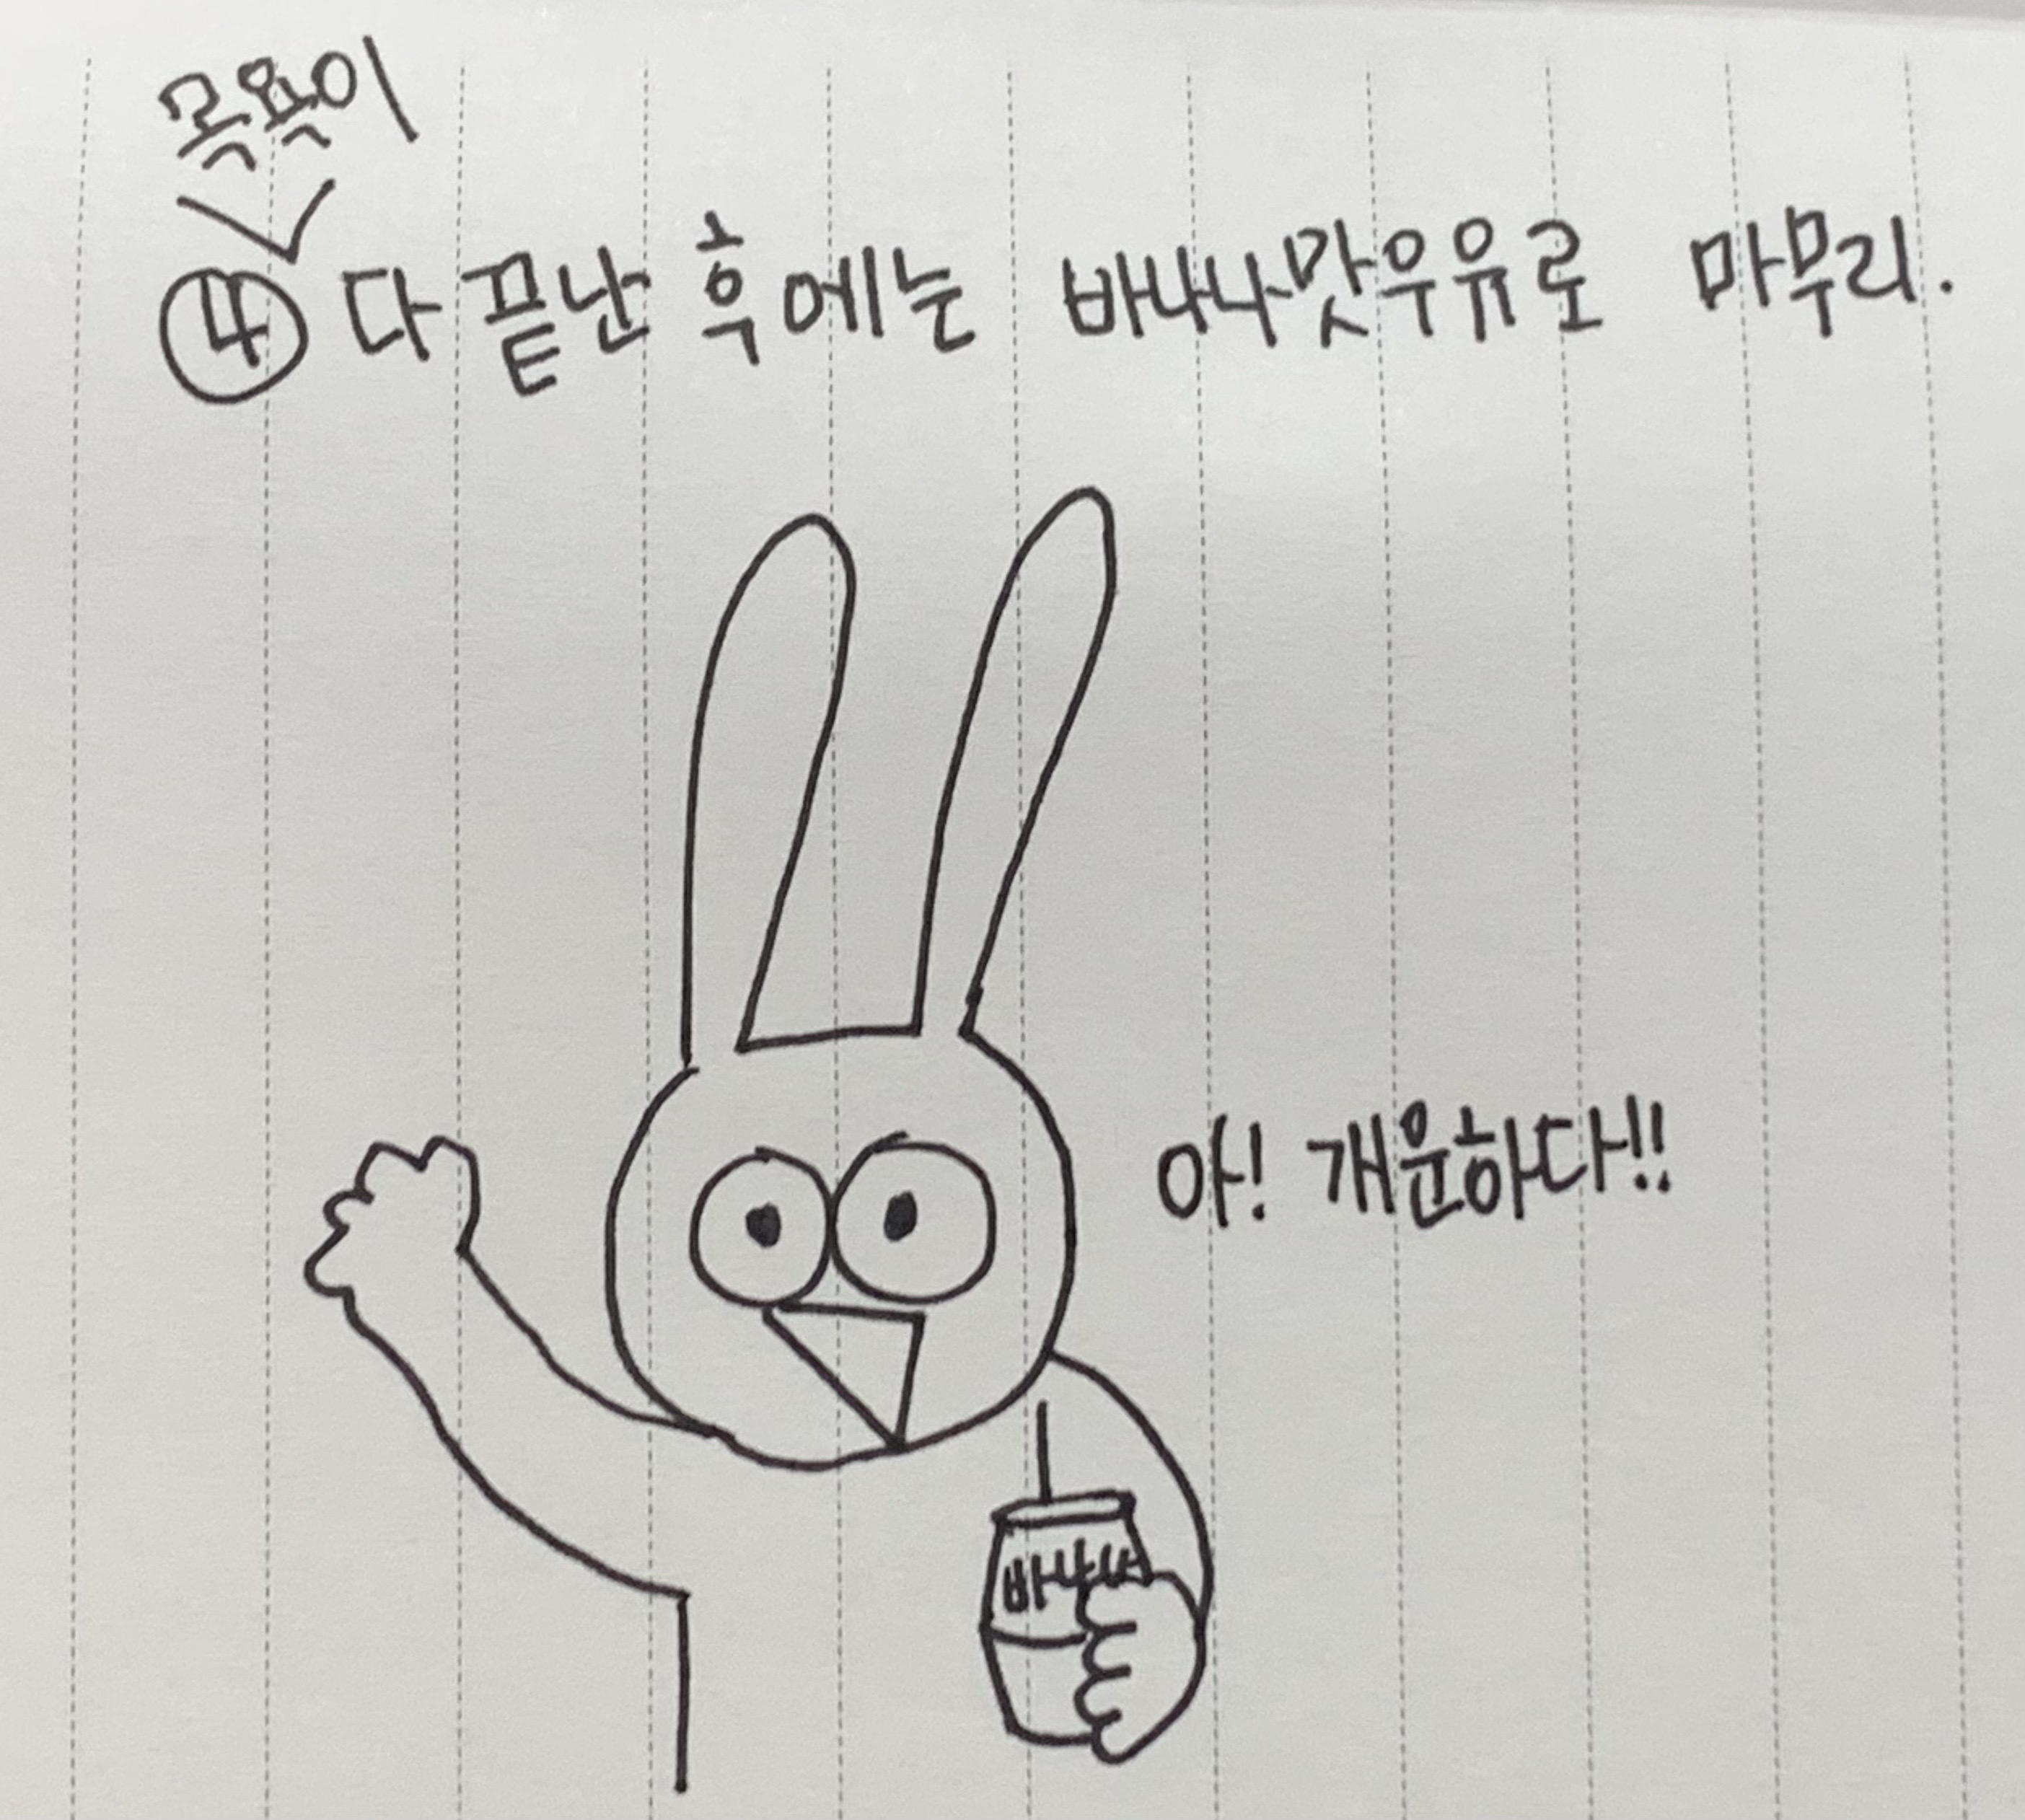 목욕이
④ 다 끝난 후에는 바나나맛우유로 마무리.
아! 개운하다!!
바나나